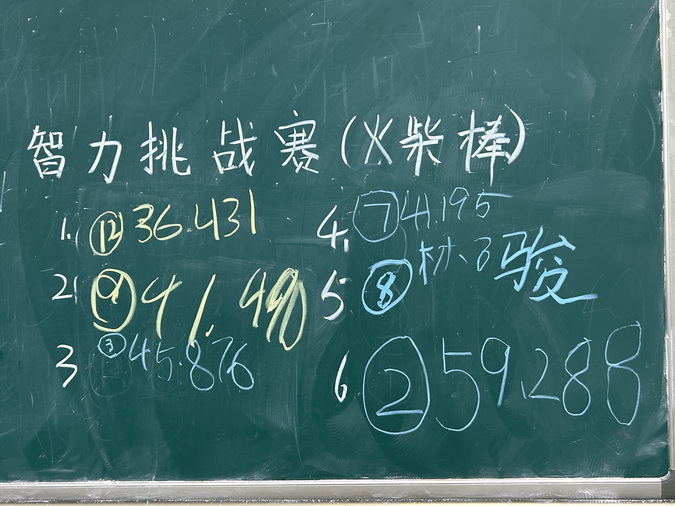 智力挑战赛(火柴棒)
1. ⑫ 36.431
2. ⑨ 41.490
3 ③ 45.876
4. ⑦ 41.195
5 ⑧ 骏
6 ② 59.288